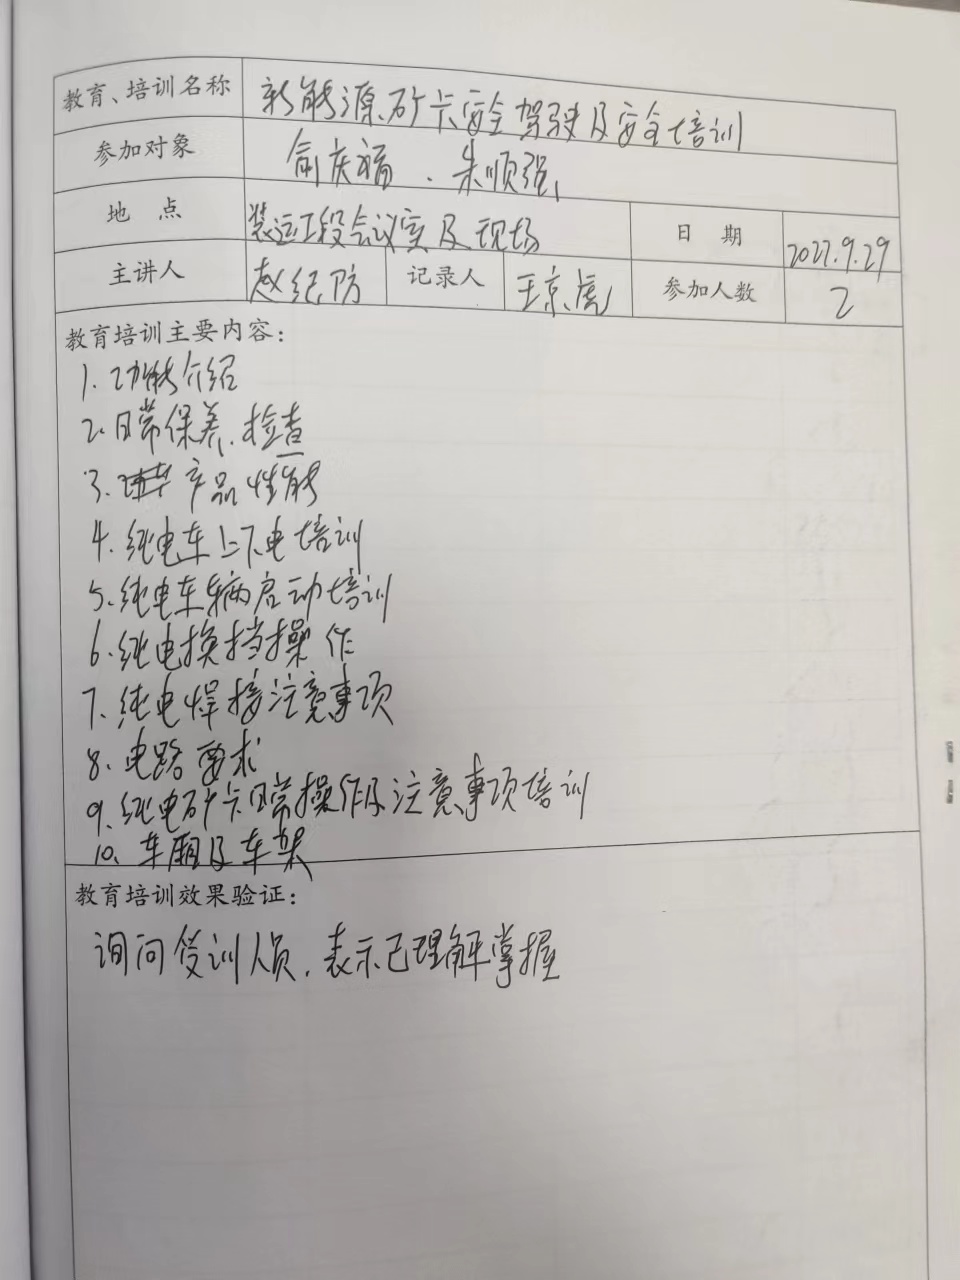 教育、培训名称 新能源矿卡安全驾驶及安全培训
参加对象 俞庆福、朱顺强
地 点 装运工段会议室及现场 日 期 2027.9.29
主讲人 赵纪防 记录人 王京虎 参加人数 2
教育培训主要内容：
1.功能介绍
2.日常保养、检查
3. 产品性能
4.纯电车上下电培训
5.纯电车辆启动培训
6.纯电换挡操作
7.纯电焊接注意事项
8.电路要求
9.纯电矿卡日常操作及注意事项培训
10.车厢及车架
教育培训效果验证：
询问受训人员，表示已理解掌握